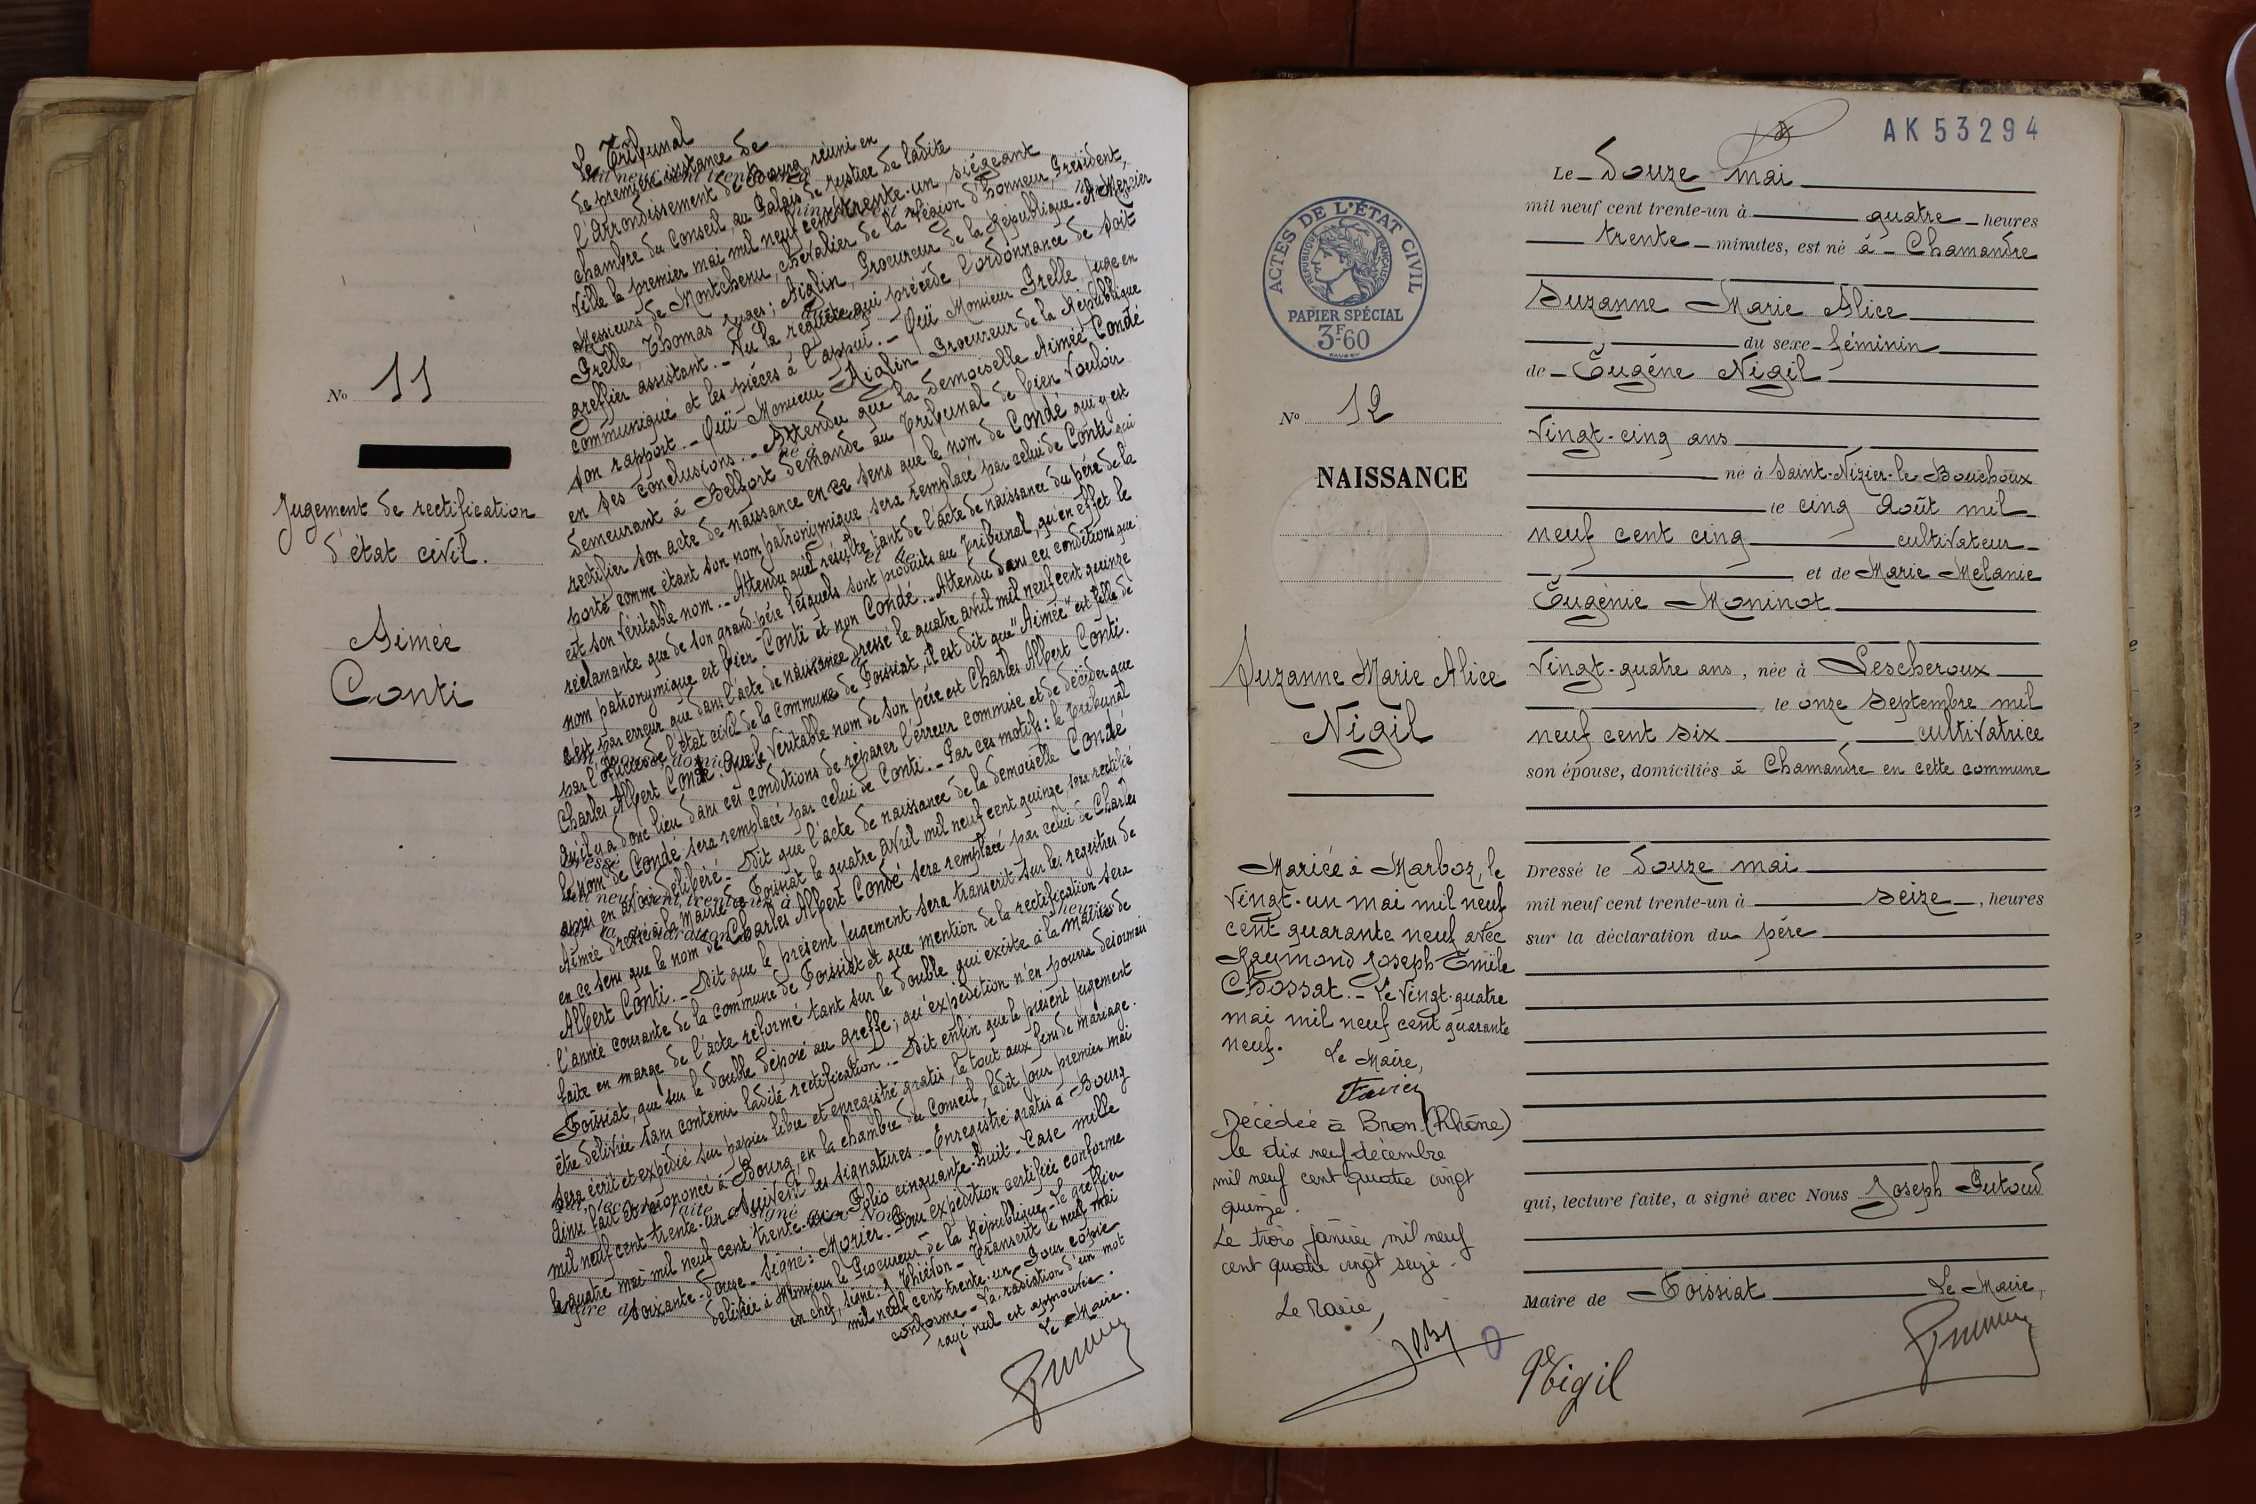 Le Tribunal
de première instance de
l'arrondissement de Bourg réuni en
chambre du Conseil au Palais de Justice de ladite
Ville le premier mai mil neuf cent trente-un, siégeant
Messieurs de Montchenu, chevalier de la Légion d'honneur, Président,
Grelle, Thomas Juges; Aiglin, Procureur de la République. A. Mercier
greffier assistant. - Vu la requête qui précède, l'ordonnance de soit
communiqué et les pièces à l'appui. - Ouï Monsieur Grelle, Juge en
son rapport. - Ouï Monsieur Aiglin Procureur de la République
en ses conclusions. - Attendu que la demoiselle Aimée Condé
demeurant à Belfort demande au Tribunal de bien vouloir
rectifier son acte de naissance en ce sens que le nom de Condé qui y est
porté comme étant son nom patronymique, sera remplacé par celui de Conti qui
est son véritable nom. - Attendu qu'il résulte tant de l'acte de naissance du père de la
réclamante que de son grand-père lesquels sont produits au Tribunal, qu'en effet le
nom patronymique est bien Conti et non Condé. - Attendu dans ces conditions que
c'est par erreur que dans l'acte de naissance dressé le quatre avril mil neuf cent quinze
par l'officier de l'état civil de la commune de Foissiat, il est dit que "Aimée" est fille de
Charles Albert Condé. Que le véritable nom de son père est Charles Albert Conti.
Qu'il y a donc lieu dans ces conditions de réparer l'erreur commise et de décider que
le nom de Condé sera remplacé par celui de Conti. - Par ces motifs: le Tribunal
après en avoir délibéré. - Dit que l'acte de naissance de la demoiselle Condé
Aimée dressé à la Mairie de Foissiat le quatre avril mil neuf cent quinze, sera rectifié
en ce sens que le nom de Charles Albert Condé sera remplacé par celui de Charles
Albert Conti. - Dit que le présent jugement sera transcrit sur les registres de
l'année courante de la commune de Foissiat et que mention de la rectification sera
faite en marge de l'acte réformé tant sur le double qui existe à la mairie de
Foissiat, que sur le double déposé au greffe; qu'expédition n'en pourra désormais
être délivrée sans contenir ladite rectification. - Dit enfin que le présent jugement
sera écrit et expédié sur papier libre et enregistré gratis, le tout aux fins de mariage.
Ainsi fait et prononcé à Bourg, en la chambre du Conseil, ledit jour premier mai
mil neuf cent trente-un. Suivent les signatures. - Enregistré gratis à Bourg
le quatre mai mil neuf cent trente-un Folio cinquante-huit - Case mille
soixante-douze - Signé: Morier. Pour expédition certifiée conforme
délivrée à Monsieur le Procureur de la République - Le greffier
en chef, signé: J. Thiévon - Transcrit le neuf mai
mil neuf cent trente-un - Pour copie
conforme - La radiation d'un mot
rayé nul est approuvée.
Le Maire.
No 11
Jugement de rectification
d'état civil.
Aimée
Conti
AK 53294
ACTES DE L'ÉTAT CIVIL
RÉPUBLIQUE FRANÇAISE
PAPIER SPÉCIAL
3F.60
No 12
NAISSANCE
Suzanne Marie Alice
Nigil
Mariée à Marboz, le
vingt-un mai mil neuf
cent quarante neuf avec
Raymond Joseph Emile
Chossat. - Le vingt-quatre
mai mil neuf cent quarante
neuf.
Le Maire,
Décédée à Bron (Rhône)
le dix neuf décembre
mil neuf cent quatre vingt
quinze.
Le trois janvier mil neuf
cent quatre vingt seize.
Le Maire,
Le douze mai
mil neuf cent trente-un à quatre heures
trente minutes, est né à Chamandre
Suzanne Marie Alice
du sexe féminin
de Eugène Nigil
vingt-cinq ans
né à Saint-Nizier-le-Bouchoux
le cinq Août mil
neuf cent cinq cultivateur
et de Marie Mélanie
Eugénie Moninot
vingt-quatre ans, née à Lescheroux
le onze septembre mil
neuf cent six cultivatrice
son épouse, domiciliés à Chamandre en cette commune
Dressé le douze mai
mil neuf cent trente-un à seize, heures
sur la déclaration du père
qui, lecture faite, a signé avec Nous Joseph Putoud
Maire de Foissiat Le Maire,
Nigil